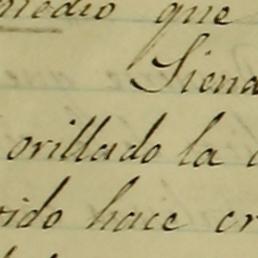 medio que
Siend
orillado la
ido hace cr